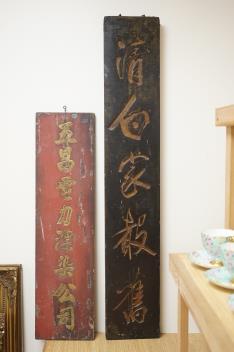 清白家聲舊
五昌電力漂染公司